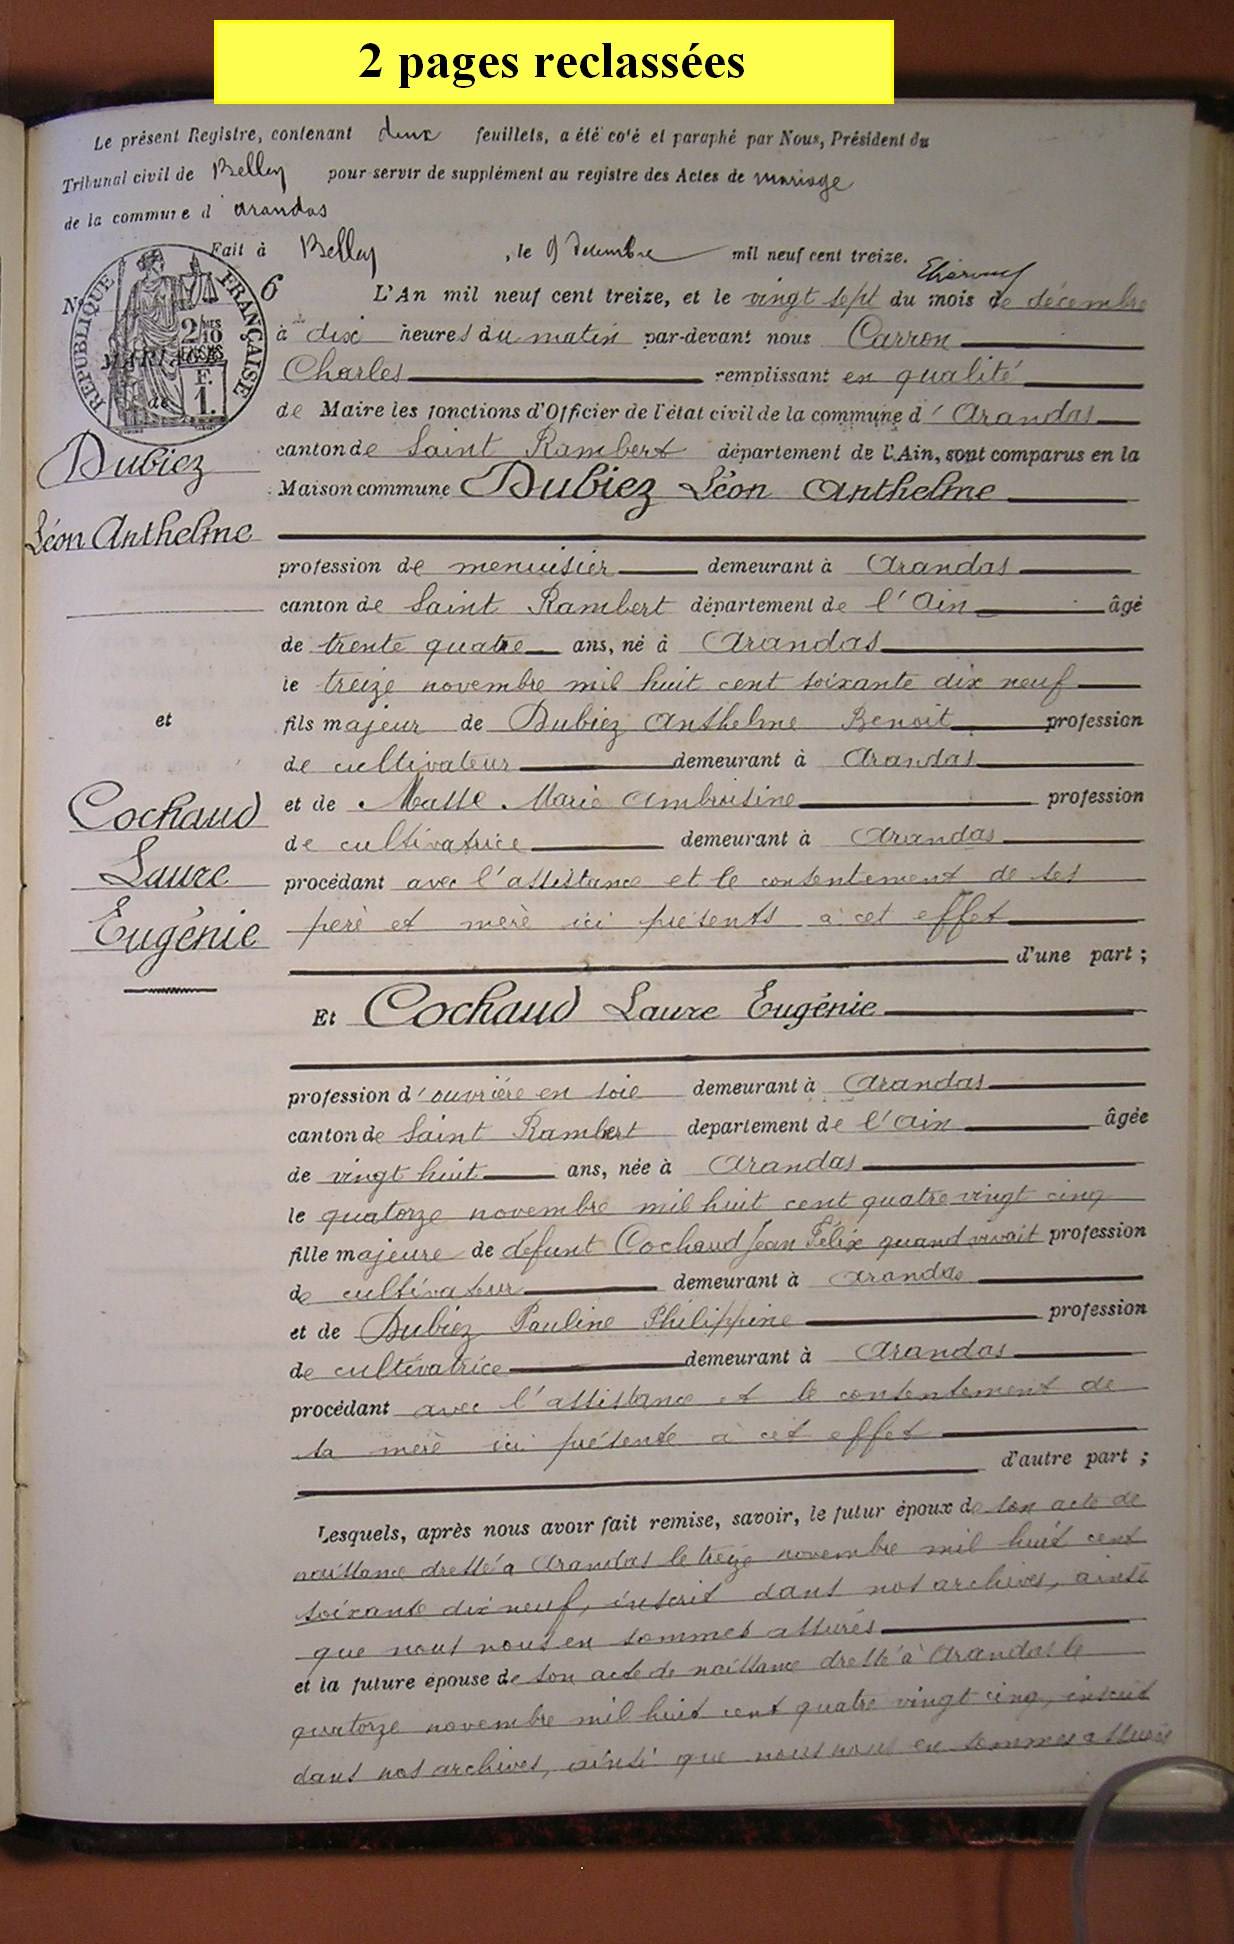 2 pages reclassées
Le présent Registre, contenant deux feuillets, a été coté et paraphé par Nous, Président du
Tribunal civil de Belley pour servir de supplément au registre des Actes de mariage
de la commune d' Arandas
Fait à Belley, le 9 Décembre mil neuf cent treize.
N° 6
RÉPUBLIQUE FRANÇAISE
2/10 EN SUS
F. 1.
MARIAGE
de
Dubiez
Léon Anthelme
et
Cochaud
Laure
Eugénie
L'An mil neuf cent treize, et le vingt sept du mois de décembre
à dix heures du matin par-devant nous Carron
Charles remplissant en qualité
de Maire les fonctions d'Officier de l'état civil de la commune d' Arandas
canton de Saint Rambert département de l'Ain, sont comparus en la
Maison commune Dubiez Léon Anthelme
profession de menuisier demeurant à Arandas
canton de Saint Rambert département de l'Ain âgé
de trente quatre ans, né à Arandas
le treize novembre mil huit cent soixante dix neuf
fils majeur de Dubiez Anthelme Benoit profession
de cultivateur demeurant à Arandas
et de Masse Marie Ambroisine profession
de cultivatrice demeurant à Arandas
procédant avec l'assistance et le consentement de ses
père et mère ici présents à cet effet
d'une part ;
Et Cochaud Laure Eugénie
profession d'ouvrière en soie demeurant à Arandas
canton de Saint Rambert département de l'Ain âgée
de vingt huit ans, née à Arandas
le quatorze novembre mil huit cent quatre vingt cinq
fille majeure de défunt Cochaud Jean Félix quand vivait profession
de cultivateur demeurant à Arandas
et de Dubiez Pauline Philippine profession
de cultivatrice demeurant à Arandas
procédant avec l'assistance et le consentement de
sa mère ici présente à cet effet
d'autre part ;
Lesquels, après nous avoir fait remise, savoir, le futur époux de son acte de
naissance dressé à Arandas le treize novembre mil huit cent
soixante dix neuf, inscrit dans nos archives, ainsi
que nous nous en sommes assurés
et la future épouse de son acte de naissance dressé à Arandas le
quatorze novembre mil huit cent quatre vingt cinq, inscrit
dans nos archives, ainsi que nous nous en sommes assurés